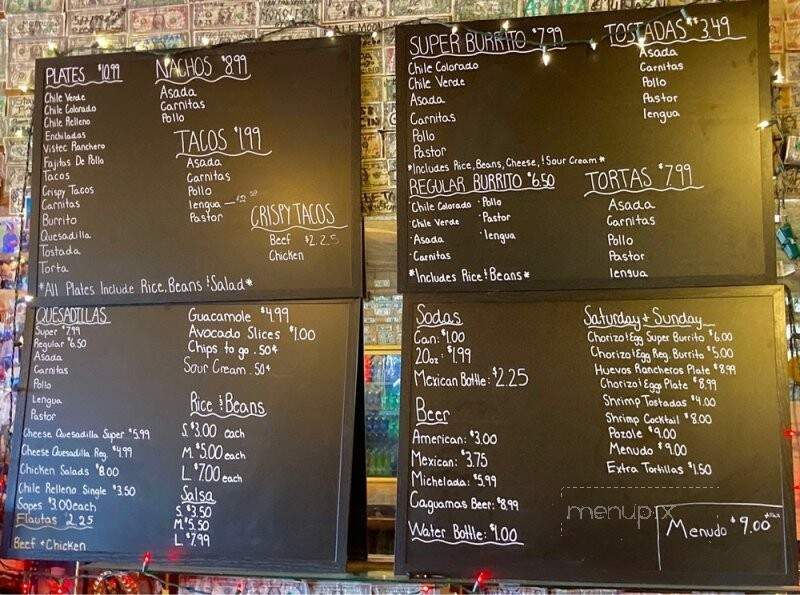 PLATES $10.99
Chile Verde
Chile Colorado
Chile Relleno
Enchiladas
Vistec Ranchero
Fajitas De Pollo
Tacos
Crispy Tacos
Carnitas
Burrito
Quesadilla
Tostada
Torta
NACHOS $8.99
Asada
Carnitas
Pollo
TACOS $1.99
Asada
Carnitas
Pollo
lengua
Pastor
CRISPY TACOS
Beef $2.25
Chicken
*All Plates Include Rice, Beans & Salad*
SUPER BURRITO $7.99
Chile Colorado
Chile Verde
Asada
Carnitas
Pollo
Pastor
*Includes Rice, Beans, Cheese, & Sour Cream*
TOSTADAS $3.49
Asada
Carnitas
Pollo
Pastor
lengua
REGULAR BURRITO $6.50
·Chile Colorado ·Pollo
·Chile Verde ·Pastor
·Asada ·lengua
·Carnitas
*Includes Rice & Beans*
TORTAS $7.99
Asada
Carnitas
Pollo
Pastor
lengua
QUESADILLAS
Super $7.99
Regular $6.50
Asada
Carnitas
Pollo
Lengua
Pastor
Cheese Quesadilla Super $5.99
Cheese Quesadilla Reg. $4.99
Chicken Salads $8.00
Chile Relleno Single $3.50
Sopes $3.00 each
Flautas 2.25
Beef + Chicken
Guacamole $4.99
Avocado Slices $1.00
Chips to go .50¢
Sour Cream .50¢
Rice & Beans
S. $3.00 each
M. $5.00 each
L. $7.00 each
Salsa
S. $3.50
M. $5.50
L $7.99
Sodas
Can: $1.00
20oz: $1.99
Mexican Bottle: $2.25
Beer
American: $3.00
Mexican: $3.75
Michelada: $5.99
Caguamas Beer: $8.99
Water Bottle: $1.00
Saturday & Sunday
Chorizo & Egg Super Burrito $6.00
Chorizo & Egg Reg. Burrito $5.00
Huevos Rancheros Plate $8.99
Chorizo & Eggs Plate $8.99
Shrimp Tostadas $4.00
Shrimp Cocktail $8.00
Pozole $9.00
Menudo $9.00
Extra Tortillas $1.50
menupix
Menudo $9.00